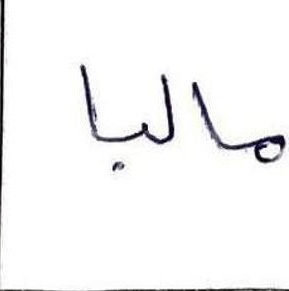 مالبا